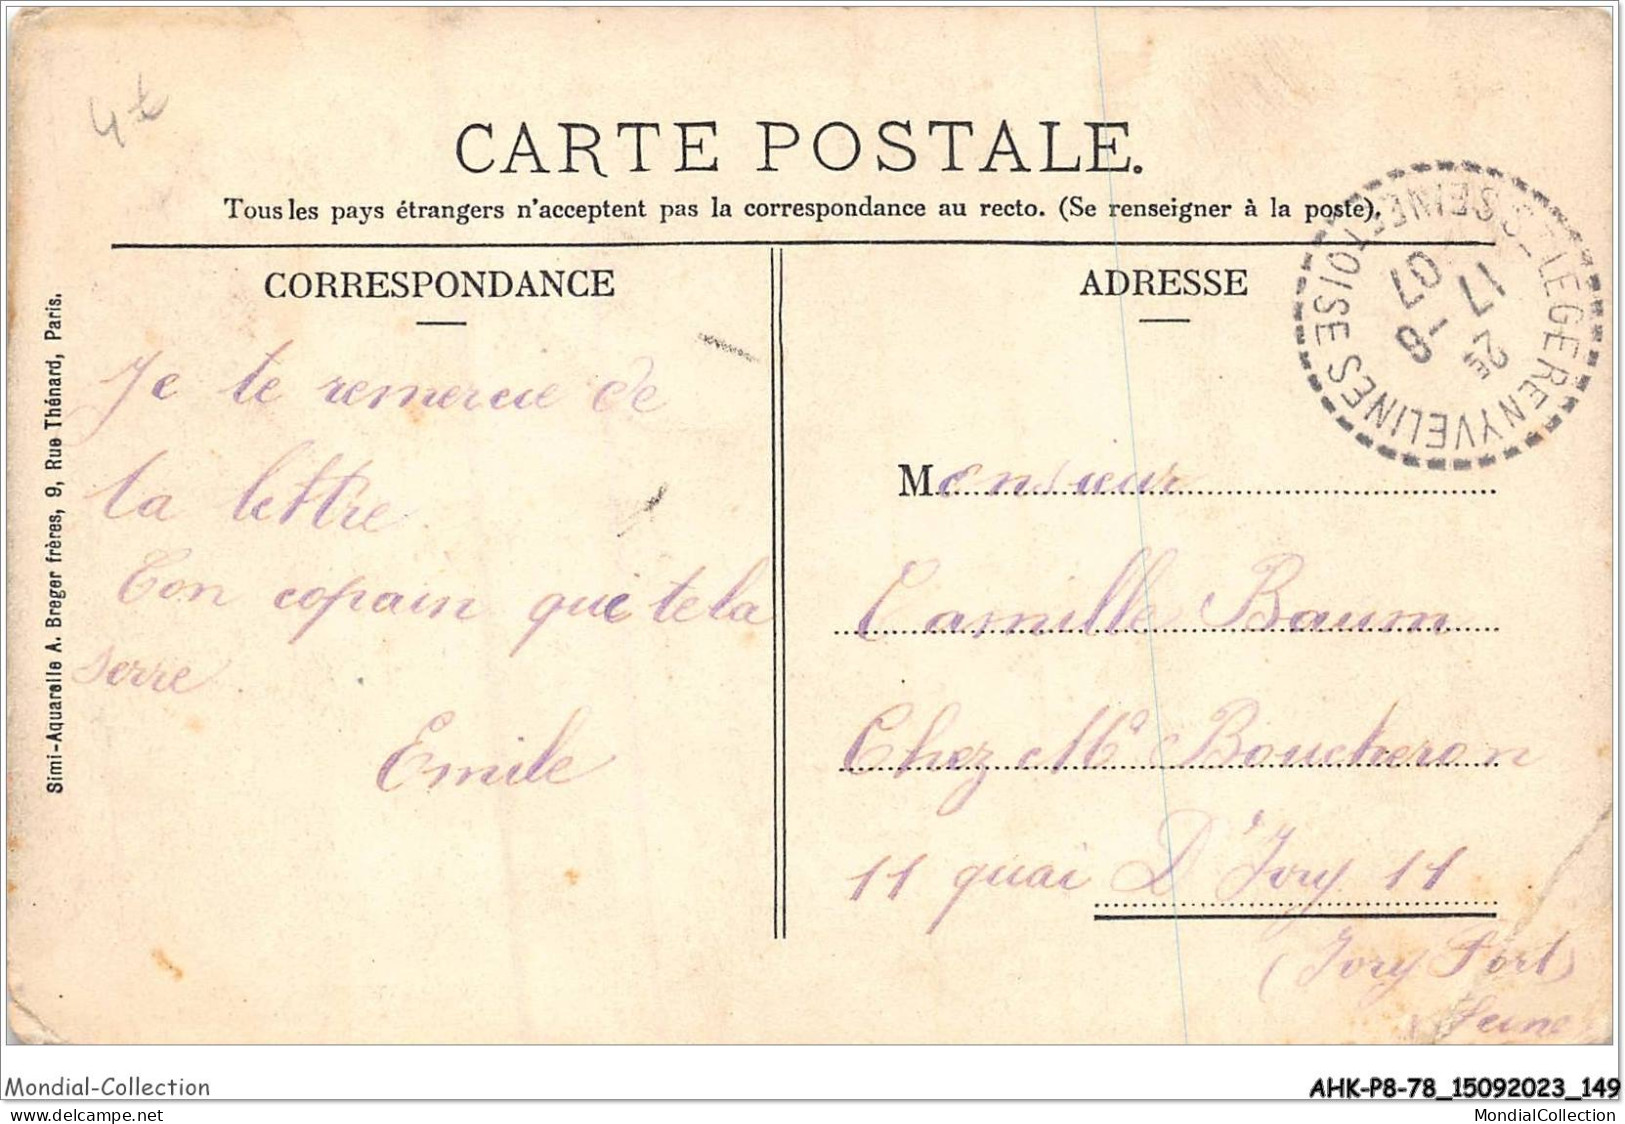 4t
CARTE POSTALE.
Tous les pays étrangers n'acceptent pas la correspondance au recto. (Se renseigner à la poste).
CORRESPONDANCE
Je te remercie de
ta lettre
Ton copain qui te la
serre.
Emile
Simi-Aquarelle A. Breger frères, 9, Rue Thénard, Paris.
ADRESSE
Monsieur
Camille Baum
Chez Me Boucheron
11 quai D'Ivry 11
(Ivry Port)
Seine
ST LEGER EN YVELINES
SEINE ET OISE
2E
17 -8
07
Mondial-Collection
AHK-P8-78_15092023_149
www.delcampe.net
MondialCollection